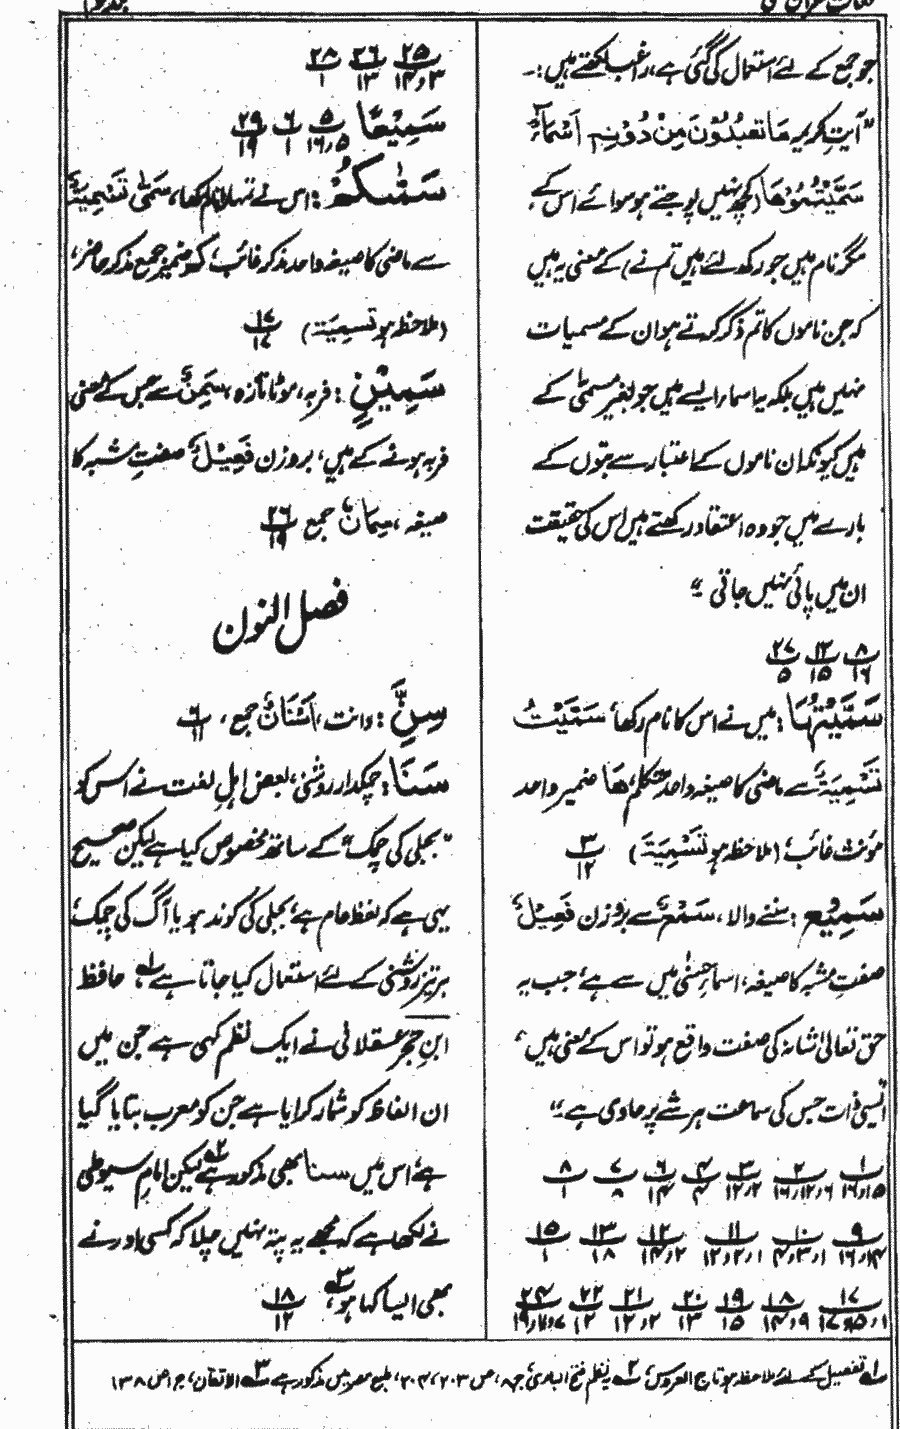 جو جمع کے لئے استعمال کی گئی ہے، راغب لکھتے ہیں :۔
"آیتِ کریمہ مَا تَعْبُدُوْنَ مِنْ دُوْنِہٖ اَسْمَآءً
سَمَّیْتُمُوْھَا (کچھ نہیں پوجتے ہو سوائے اس کے
مگر نام ہیں جو رکھ لئے ہیں تم نے) کے معنی یہ ہیں
کہ جن ناموں کا تم ذکر کرتے ہو ان کے مسمیات
نہیں ہیں بلکہ یہ اسماء ایسے ہیں جو بغیر مسمّٰی کے
ہیں کیونکہ ان ناموں کے اعتبار سے بتوں کے
بارے میں جو وہ اعتقاد رکھتے ہیں اس کی حقیقت
ان میں پائی نہیں جاتی"
۸/۱۶ ۱۲/۱۵ ۲۷/۵
سَمَّیْتُہَا : میں نے اس کا نام رکھا، سَمَّیْتُ
تَسْمِیَۃٌ سے ماضی کا صیغہ واحد متکلم، ھَا ضمیر واحد
مؤنث غائب، (ملاحظہ ہو تَسْمِیَۃ) ۳/۱۲
سَمِیْع : سننے والا، سَمْعٌ سے بروزن فَعِیْلٌ
صفتِ مشبہ کا صیغہ، اسماءِ حسنٰی میں سے ہے، جب یہ
حق تعالیٰ شانہٗ کی صفت واقع ہو تو اس کے معنی ہیں
"ایسی ذات جس کی سماعت ہر شے پر حاوی ہے"
۱/۱۵،۱۶ ۲/۶،۱۲،۱۶ ۳/۲،۱۲ ۴/۴ ۶/۱۴ ۷/۸ ۸/۱
۹/۱۴،۱۶ ۱۰/۱،۳،۴ ۱۱/۱،۲،۱۲ ۱۲/۲،۱۴ ۱۳/۱۸ ۱۵/۱
۱۸/۹،۱۴ ۱۹/۱۵ ۲۰/۱۳ ۲۱/۲،۱۲ ۲۲/۱۲
۲۵/۳،۱۴ ۲۶/۱۳ ۲۸/۱
سَمِیْعًا ۵/۵،۱۶ ۶/۱ ۲۹/۱۹
سَمّٰىکُمْ : اس نے تمہارا نام رکھا، سَمّٰی تَسْمِیَۃٌ
سے ماضی کا صیغہ واحد مذکر غائب، کُم ضمیر جمع مذکر حاضر،
(ملاحظہ ہو تَسْمِیَۃ) ۱۷/۱۷
سَمِیْنٍ : فربہ، موٹا تازہ، سَمِنٌ سے جس کے معنی
فربہ ہونے کے ہیں، بروزن فَعِیْلٌ صفتِ مشبہ کا
صیغہ، سِمَانٌ جمع ۲۶/۱۹
فصل النون
سِنٌّ : دانت، اَسْنَانٌ جمع، ۶/۱۱
سَنَا : چمکدار روشنی، بعض اہلِ لغت نے اس کو
"بجلی کی چمک" کے ساتھ مخصوص کیا ہے لیکن صحیح
یہی ہے کہ لفظ عام ہے، بجلی کی کوند ہو یا آگ کی چمک،
ہر تیز روشنی کے لئے استعمال کیا جاتا ہے، حافظ
ابنِ حجر عسقلانی نے ایک نظم کہی ہے جن میں
ان الفاظ کو شمار کرایا ہے جن کو معرب بتایا گیا
ہے اس میں سنا بھی مذکور ہے لیکن امام سیوطی
نے لکھا ہے کہ مجھے یہ پتہ نہیں چلا کہ کسی اور نے
بھی ایسا کہا ہو، ۱۸/۱۲
لہ تفصیل کے لئے ملاحظہ ہو تاج العروس، ۲ یہ نظم فتح الباری، ج ۸، ص ۲۰۳، ۲۰۴، طبع مصر میں مذکور ہے ۳ الاتقان، ج ۱ ص ۱۳۸